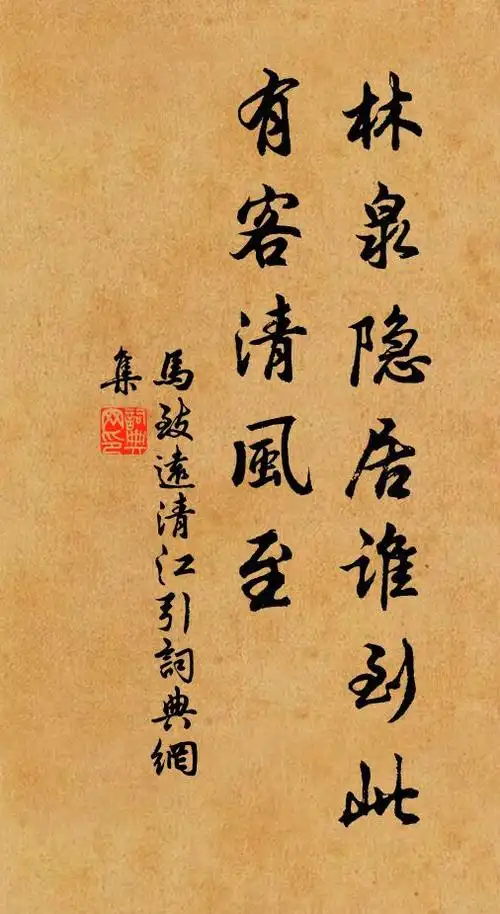 林泉隐居谁到此
有客清風至
馬致遠清江引詞典網
集
詞典
网印